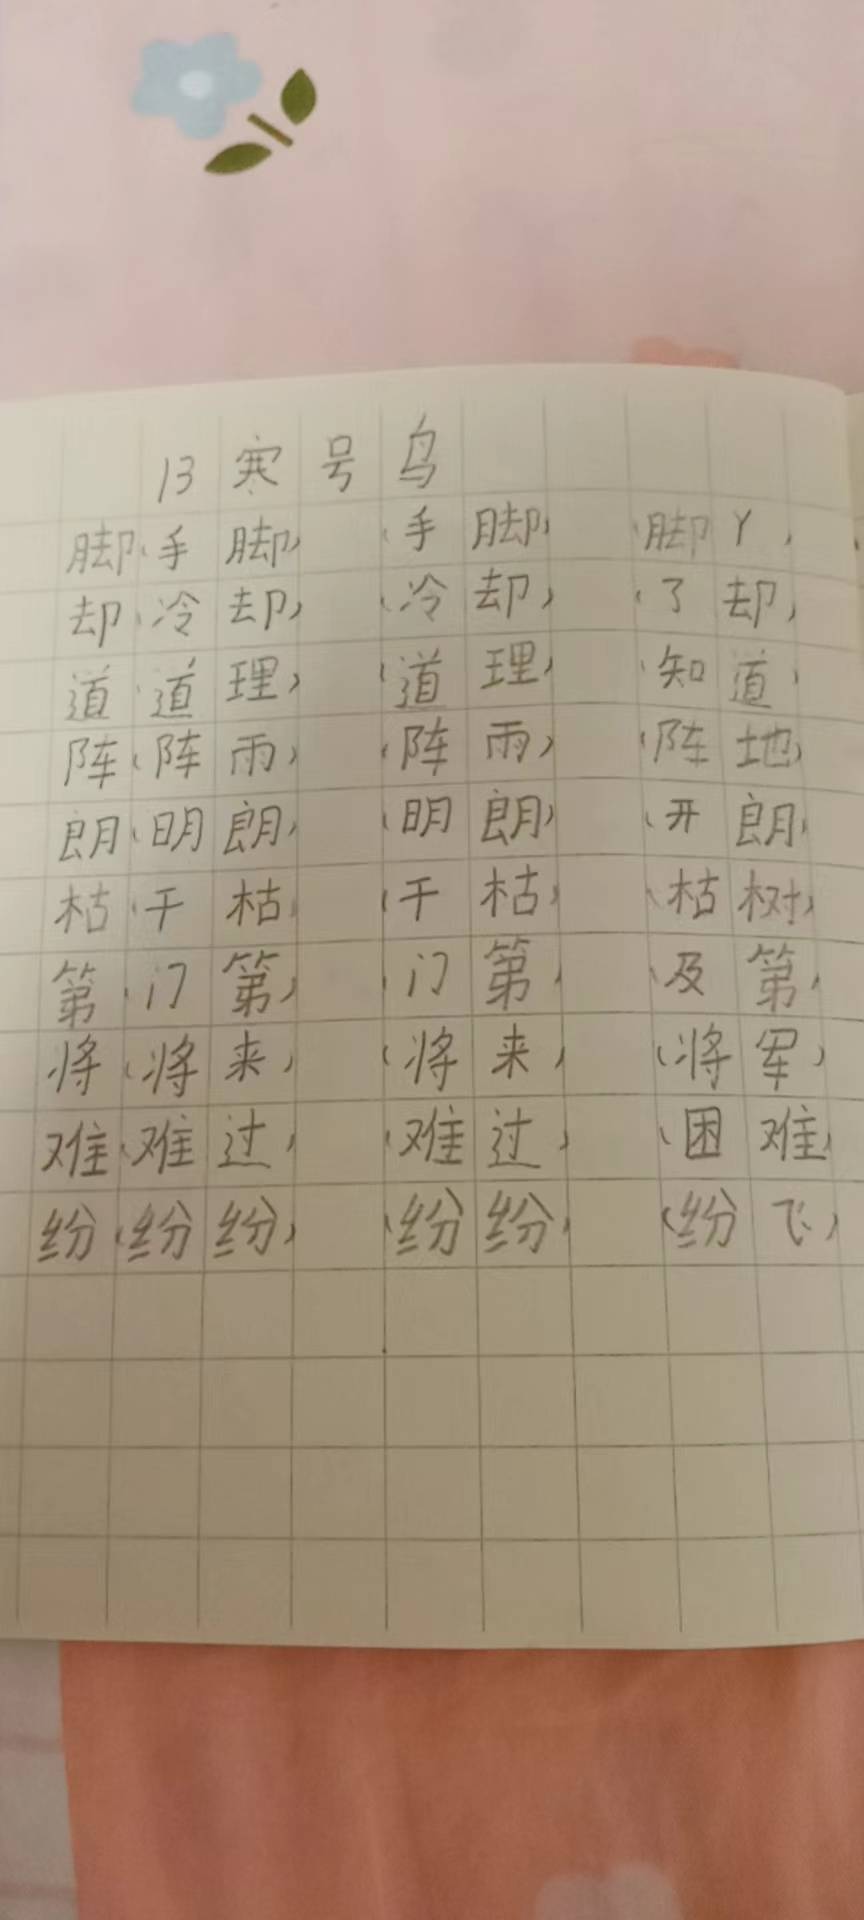 13 寒号鸟
脚(手脚) (手脚) (脚丫)
却(冷却) (冷却) (了却)
道(道理) (道理) (知道)
阵(阵雨) (阵雨) (阵地)
朗(明朗) (明朗) (开朗)
枯(干枯) (干枯) (枯树)
第(门第) (门第) (及第)
将(将来) (将来) (将军)
难(难过) (难过) (困难)
纷(纷纷) (纷纷) (纷飞)